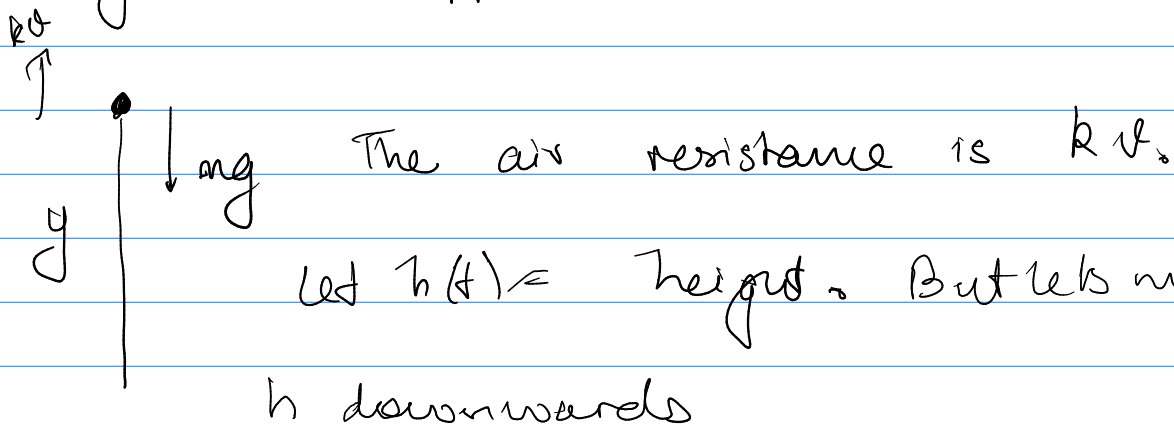 kv
mg The air resistance is kv.
y
Let h(t) = height. But lets
h downwards